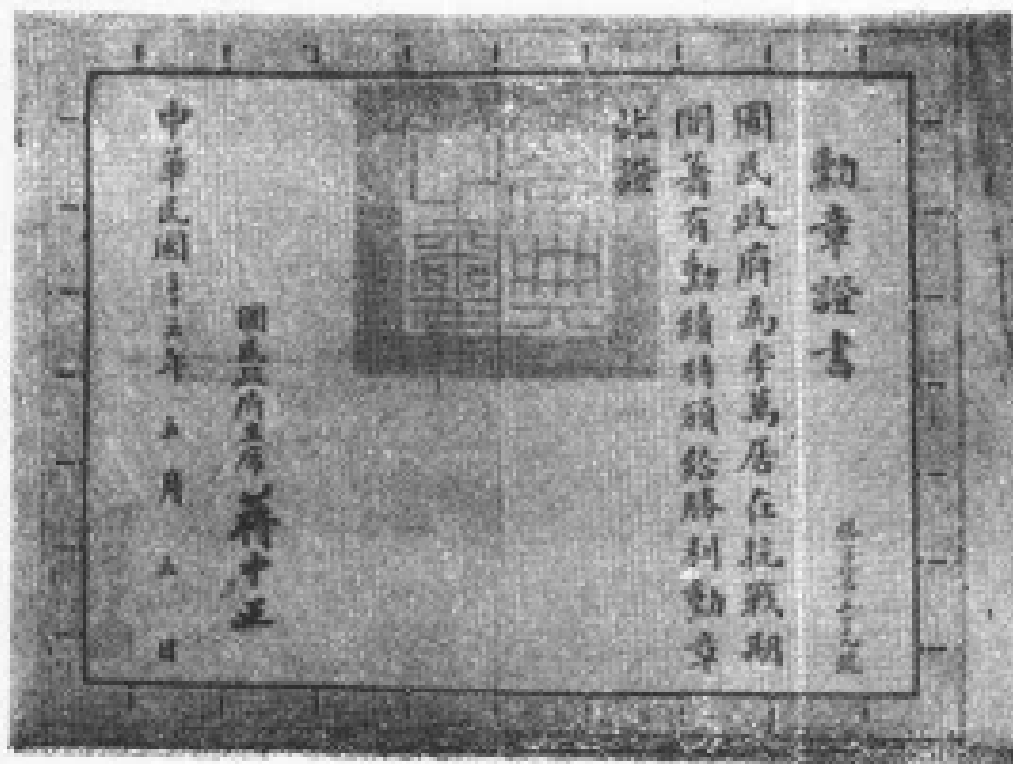 勳章證書
國民政府為李萬居在抗戰期
間著有勳績特頒給勝利勳章
此證
國民政府主席 蔣中正
中華民國三十五年 五月 五日